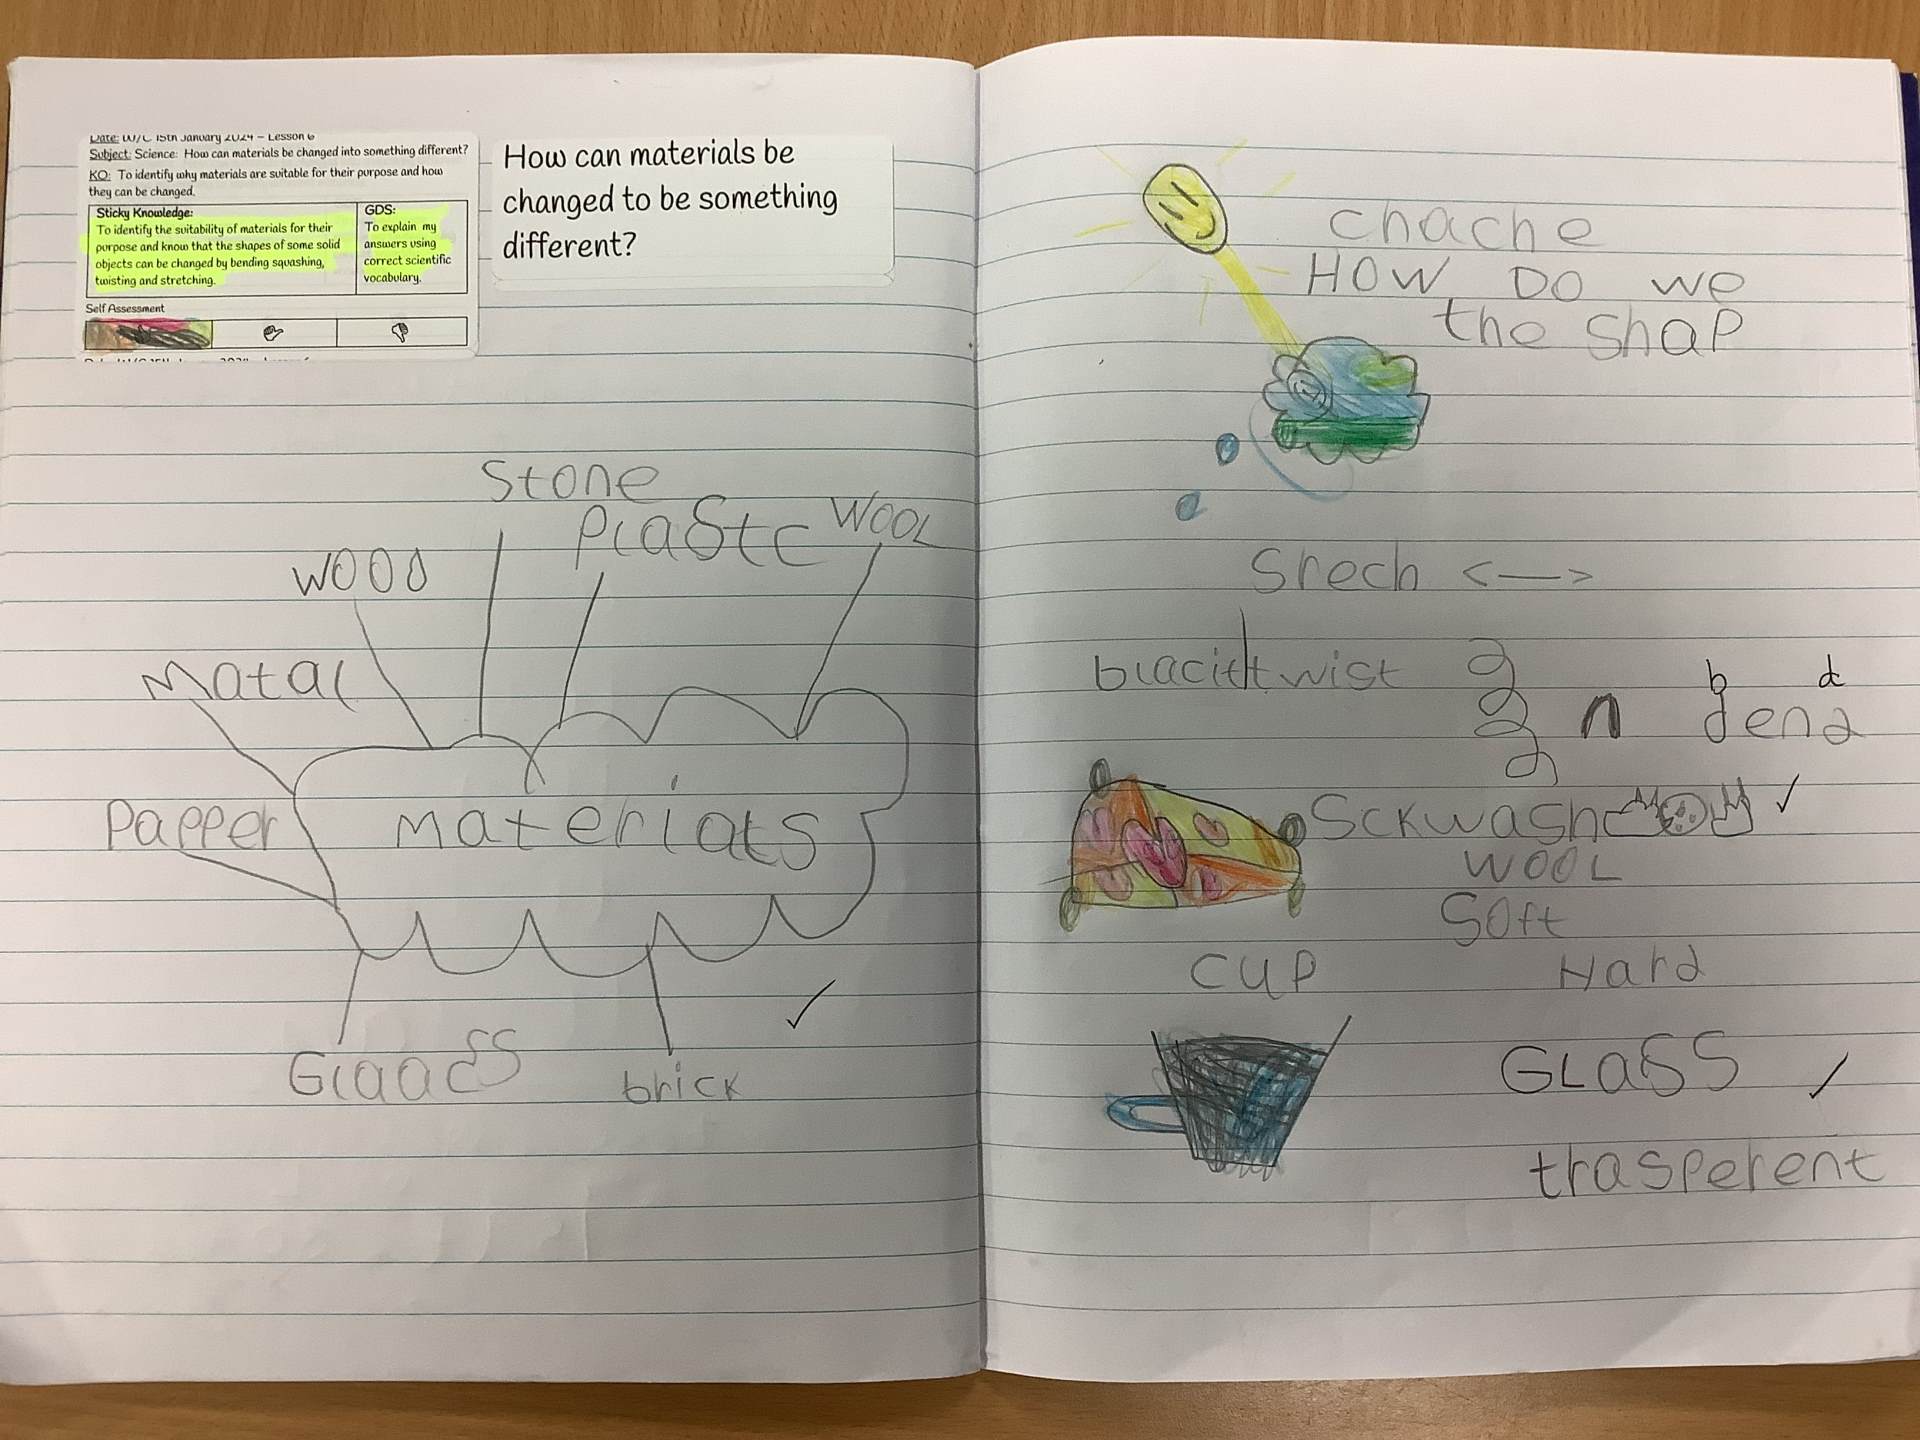 Date: W/C 15th January 2024 – Lesson 6
Subject: Science: How can materials be changed into something different?
KO: To identify why materials are suitable for their purpose and how
they can be changed.
Sticky Knowledge:
To identify the suitability of materials for their
purpose and know that the shapes of some solid
objects can be changed by bending squashing,
twisting and stretching.
GDS:
To explain my
answers using
correct scientific
vocabulary.
Self Assessment
How can materials be
changed to be something
different?
Stone
Plastc
WOOL
WOOd
Matal
Papper
Materials
Glaacss
brick
chache
HOW DO we
the shap
Srech <—>
twist
b d
dend
Sckwash
WOOL
Soft
CUP
Hard
GLaSS
trasperent